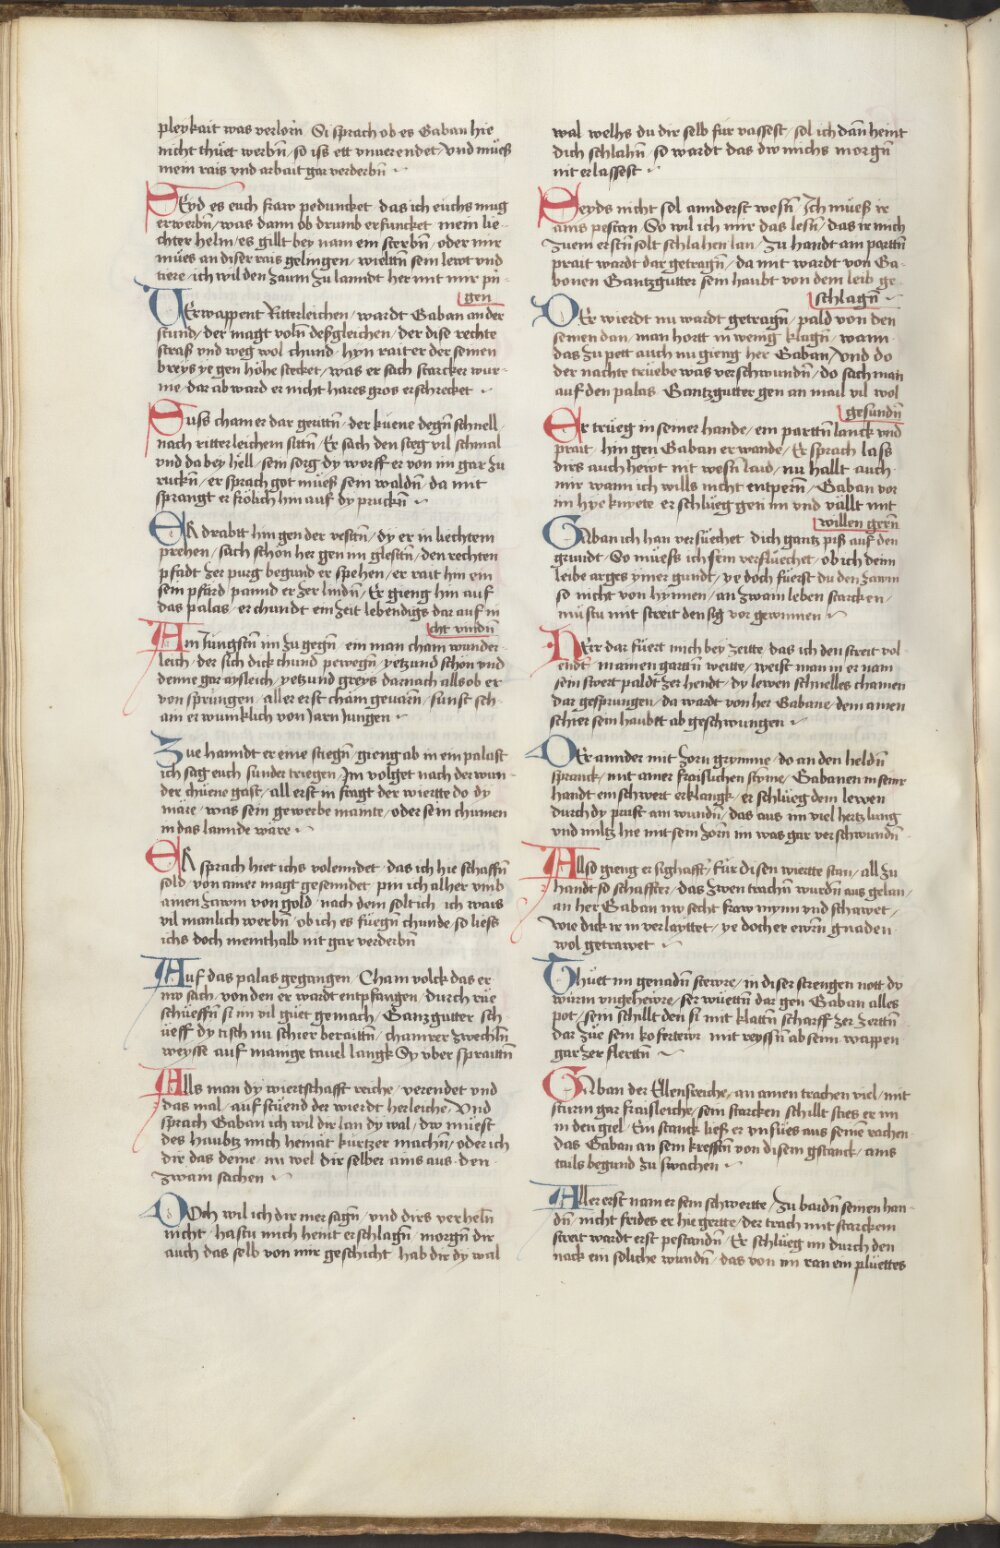 pleykait was verlorn Si sprach ob es Gaban hie
nicht thuet werbn / so iss ett unverendet / Und mues
mein rais und arbait gar verderbn
SEyd es euch fraw peduncket das ich euchs mug
erwerbn / was dann ob drumb erfuncket mein lie-
chter helm / es gillt bey nam ein sterbn / oder mir
mues an diser rais gelingen / wielttn sein lewt und
tiere / ich wil den zaum zu lanndt her mit mir prin
gen
VErwappent Ritterleichen / wardt Gaban an der
stund / der magt voln desgleichen / der dise rechte
strass und weg wol chund / hyn rait er der seinen
breys ye gen höhe stecket / was er sach starcker wur-
me / dar ab ward er nicht hares gros erschrecket
Suss cham er dar gerittn / der küene degn schnell
nach ritterleichem sittn / Er sach den steg vil schmal
und da bey hell / sein sorg dy worff er von im gar zu
ruckn / er sprach got mues sein waldn da mit
sprangt er frölich hin auf dy pruckn
ER drabtt hin gen der vestn / dy er in liechtem
prehen / sach schon her gen im glestn / den rechten
pfadt zer purg begund er spehen / er rait hin ein
sein pfard pannd er zer lindn / Er gieng hin auf
das palas / er chundt ein zeit lebendigs dar auf ni
cht vindn
Am Jungstn im zu gegn / ein man cham wunder
leich / der sich dick chund pewegn / yetzund schon und
denne gar aysleich / yetzund greys darnach alls ob er
von sprungen / aller erst cham gevarn / sunst sch
am er wunklich von Jarn Jungen
Zue hanndt er eine stiegn / gieng ab in ein palast
ich sag euch sunder triegen Im volget nach der wun
der chüene gast / all erst in fragt der wiertte do dy
märe / was sein gewerbe mainte / oder sein chumen
in das lannde wäre
ER sprach hiet ichs volenndet / das ich hie schaffn
sold / von ainer magt gesenndet pin ich alher umb
ainen zawm von gold / nach dem solt ich / ich wais
vil manlich werbn / ob ich es füegn chunde / so liess
ichs doch meinthalb nit gar verderbn
Auf das palas gegangen / Cham volck das er
nie sach / von den er wardt entpfangen / durch rüe
schueffn si im vil güet gemach / Gantzgutter sch
ueff dy tisch nu schier beraittn / chamrer zwecheln
weysse auf manige tavel langk Sy uber spraittn
Alls man dy wiertschafft reiche / verendet und
das mal / auf stüend der wierdt herleiche / Und
sprach Gaban ich wil dir lan dy wal / dw muest
des haubtz mich heinat kurtzer machn / oder ich
dir das deine / nu wel dir selber ains aus den
zwain sachen
Doch wil ich dir mer sagn / und dirs verheln
nicht / hastu mich heint erschlagn morgn dir
auch das selb von mir geschicht / hab dir dy wal
wal welhs du dir selb fur vassest / sol ich dann heint
dich schlahn / so wardt das dw michs morgn
nit erlassest
Seyds nicht sol annderst wesn Ich mues ir
ains pestan So wil ich mir das lesn / das ir mich
zuem erstn solt schlahen lan / Zu handt ain parttn
prait wardt dar getragn / da mit wardt von Ga-
bonen Gantzgutter sein haubt von dem leib ge
schlagn
DEr wierdt nu wardt getragn / pald von den
seinen dan / man hortt in wenig klagn / wann
das zu pett auch nu gieng her Gaban / Und do
der nachte truebe was verschwundn / do sach man
auf den palas Gantzgutter gen an mail vil wol
gesundn
Er trüeg in seiner hande / ein parttn lanck und
prait / hin gen Gaban er wande / Er sprach lass
dirs auch hewt nit wesn laid / nu hallt auch
mir wann ich wills nicht entpern / Gaban vor
im hye knyete er schlüeg gen im und vällt mit
willen gern
Gaban ich han versüechet dich gantz piss auf den
grundt / So müess ich sein verflüechet / ob ich deim
leibe arges ymer gundt / ye doch fuerst du den zawm
so nicht von hynnen / an zwain leben starcken /
müstu mit streit den sig vor gewinnen
NEir dar füert mich bey zeitte / das ich den streit vol
endt / in ainen gartn weitte / weist man in er nam
sein swert paldt zer hendt / dy lewen schnelles chamen
dar gesprungen / da wardt von her Gabane / dem ainen
schier sein haubtt ab geschwungen
DEr annder mit zorn grymme / do an den heldn
spranck / mit ainer fraislichen styme / Gabanen in seinr
handt ein schwert erklangk / er schlüeg dem lewen
durch dy prust ain wundn / das aus im viel hertz lung
und miltz hie mit sein zorn im was gar verschwundn
Allso gieng er sighafft / Für disen wiertte stan / all zu
handt so schaffter / das zwen trachn wurdn aus gelan /
an her Gaban nw secht fraw mynn und schawet /
wie dick ir in verlayttet / ye doch er ewrn gnaden
wol getrawet
Thuet im genadn stewre / in diser strengen nott dy
würm ungehewre / ser wüettn dar gen Gaban alles
pot / sein schillt den si mit klattn scharff zer zerttn
dar züe sein kofertewr mit reyssn ab seim wappen
gar zer flerttn
Gaban der Ellensreiche / an ainen trachen viel / mit
sturm gar fraisleiche / sein starcken schillt sties er im
in den giel / Ein stanck liess er unsües aus seinem rachen
das Gaban an sein kreffttn von disem gstanck / ains
tails begund zu swachen
Aller erst nam er sein schwertte / Zu baidn seinen han-
dn / nicht frides er hie gertte / der trach mit starckem
streit wardt erst pestandn / Er schlüeg im durch den
nack ein soliche wundn / das von im ran ein plüettes